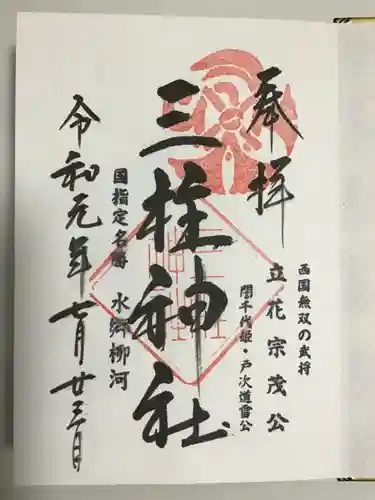 奉拝
西国無双の武将
立花宗茂公
誾千代姫・戸次道雪公
三柱神社
国指定名勝
水郷柳河
令和元年七月廿三日